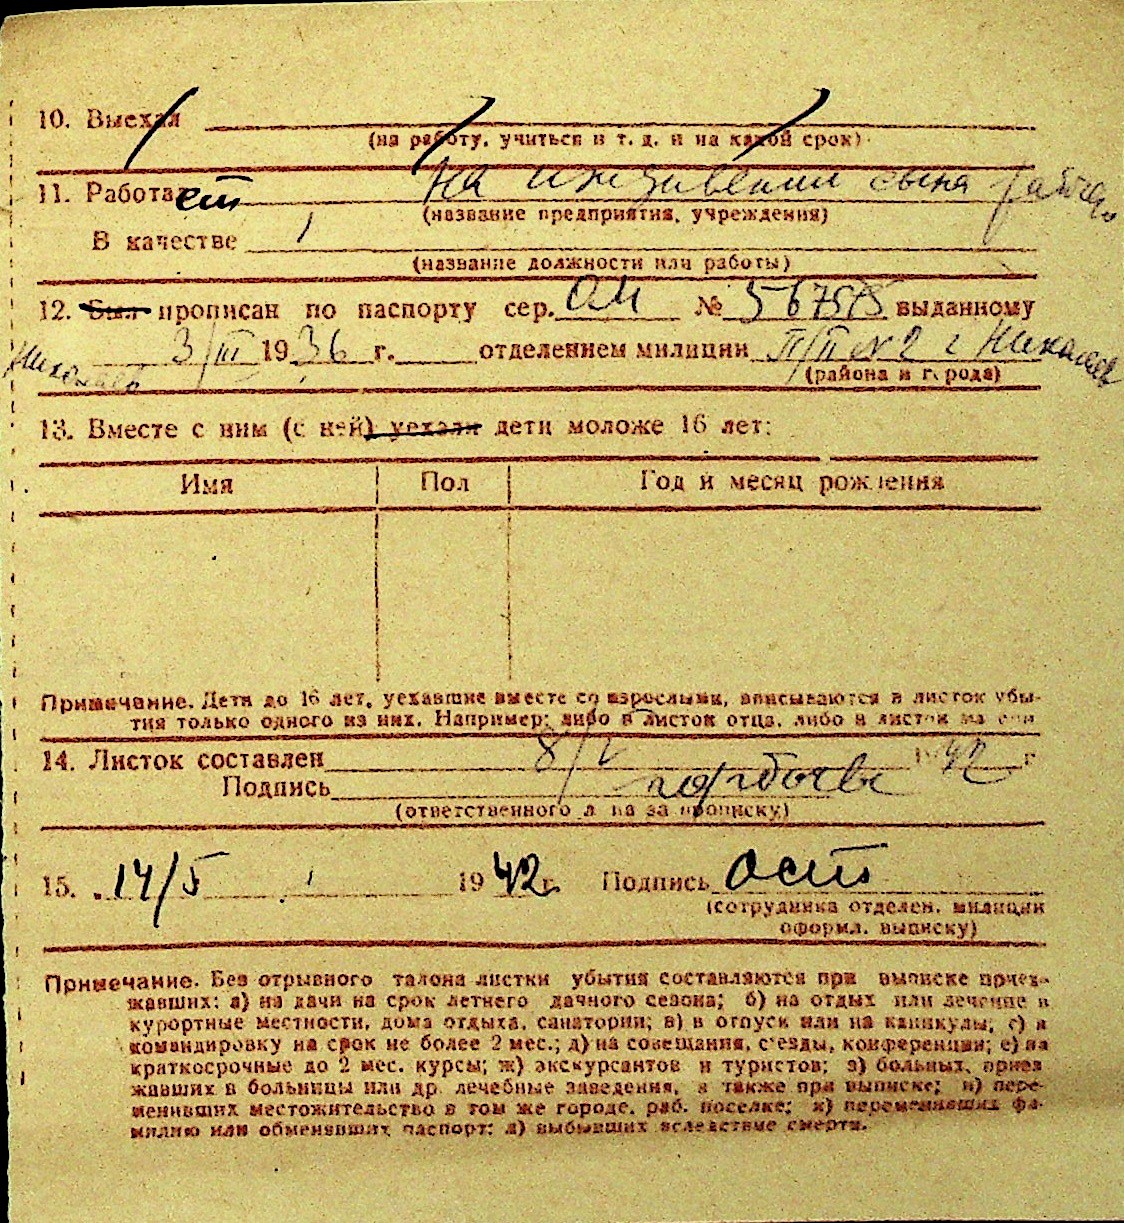 10. Выехал
(на работу, учиться и т. д. и на какой срок)
11. Работает на иждивении сына рабочего
(название предприятия, учреждения)
В качестве
(название должности или работы)
12. Был прописан по паспорту сер. ОМ № 567515 выданному
Николаев 3/III 1936 г. отделением милиции П/П № 2 г Николаев
(района и города)
13. Вместе с ним (с ней) уехали дети моложе 16 лет:
Имя Пол Год и месяц рождения
Примечание. Дети до 16 лет, уехавшие вместе со взрослыми, вписываются в листок убы-
тия только одного из них. Например: либо в листок отца, либо в листок матери
14. Листок составлен 8/V 1942 г
Подпись
(ответственного лица за прописку)
15. 14/5 1942 г. Подпись
(сотрудника отделен. милиции
оформл. выписку)
Примечание. Без отрывного талона листки убытия составляются при выписке приез-
жавших: а) на дачи на срок летнего дачного сезона; б) на отдых или лечение в
курортные местности, дома отдыха, санатории; в) в отпуск или на каникулы; г) в
командировку на срок не более 2 мес.; д) на совещания, с'езды, конференции; е) на
краткосрочные до 2 мес. курсы; ж) экскурсантов и туристов; з) больных, приез
жавших в больницы или др. лечебные заведения, а также при выписке; и) пере-
менивших местожительство в том же городе, раб. поселке; к) переменивших фа-
милию или обменявших паспорт; л) выбывших вследствие смерти.